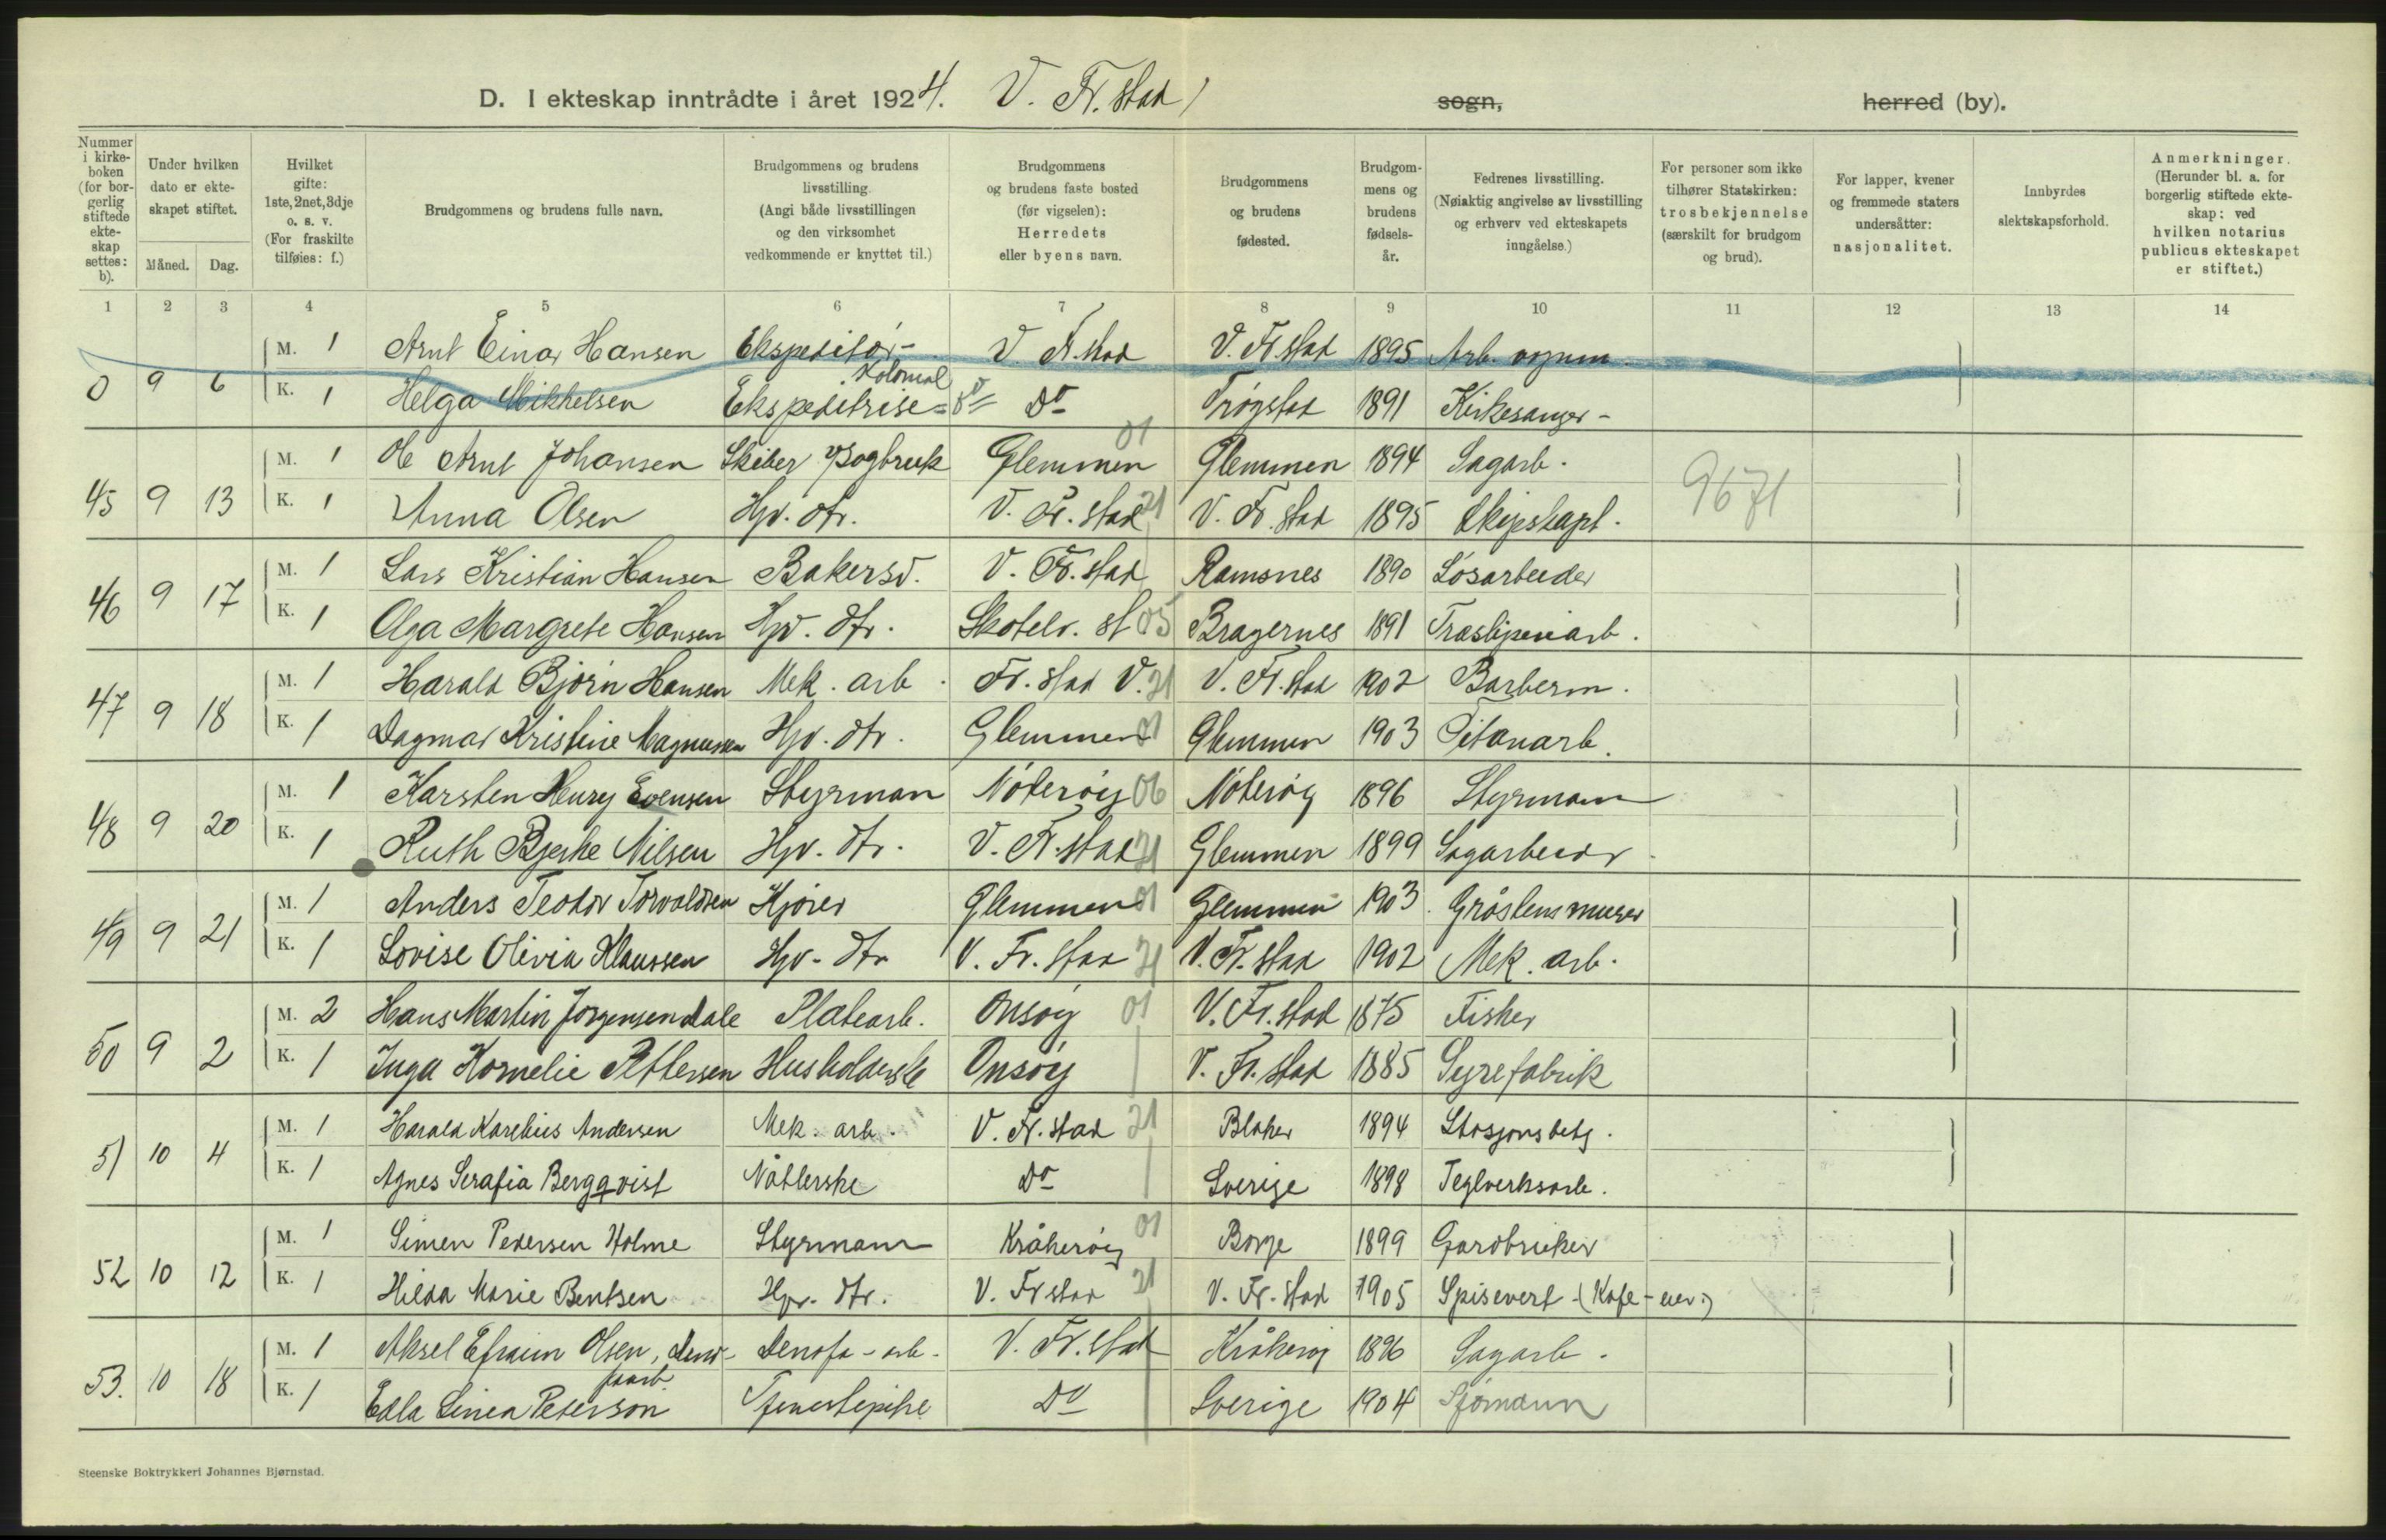 D. I ekteskap inntrådte i året 1924. V. Fr.stad sogn, herred (by).
Nummer i kirkeboken (for borgerlig stiftede ekteskap settes: b).
Under hvilken dato er ekteskapet stiftet.
Måned. Dag.
Hvilket gifte: 1ste, 2net, 3dje o. s. v. (For fraskilte tilføies: f.)
Brudgommens og brudens fulle navn.
Brudgommens og brudens livsstilling. (Angi både livsstillingen og den virksomhet vedkommende er knyttet til.)
Brudgommens og brudens faste bosted (før vigselen): Herredets eller byens navn.
Brudgommens og brudens fødested.
Brudgommens og brudens fødselsår.
Fedrenes livsstilling. (Nøiaktig angivelse av livsstilling og erhverv ved ekteskapets inngåelse.)
For personer som ikke tilhører Statskirken: trosbekjennelse (særskilt for brudgom og brud).
For lapper, kvener og fremmede staters undersåtter: nasjonalitet.
Innbyrdes slektskapsforhold.
Anmerkninger. (Herunder bl. a. for borgerlig stiftede ekteskap: ved hvilken notarius publicus ekteskapet er stiftet.)
1 2 3 4 5 6 7 8 9 10 11 12 13 14
M. 1 Arnt Einar Hansen Ekspeditør- V Fr.stad V. Fr.stad 1895 Arb.
Kolonial
0 9 6 K. 1 Helga Mikkelsen Ekspeditrise= Do Trøgstad 1891 Kirkesanger-
M. 1 Ole Arnt Johansen Skiber Glemmen 01 Glemmen 1894 Sagarb.
45 9 13 K. 1 Anna Olsen Hjv. dtr. V. Fr.stad 21 V. Fr.stad 1895 Skipskapt. 9671
M. 1 Lars Kristian Hansen Bakersv. V. Fr.stad Ramsnes 1890 Løsarbeider
46 9 17 K. 1 Olga Margrete Hansen Hjv. dtr. Skotselv. st 05 Bragernes 1891 Træsliperiarb.
M. 1 Harald Bjørn Hansen Mek. arb. Fr.stad V. 21 V. Fr.stad 1902 Barberm.
47 9 18 K. 1 Dagmar Kristine Magnussen Hjv. dtr. Glemmen 01 Glemmen 1903 Titanarb.
M. 1 Karsten Henry Evensen Styrman Nøterøy 06 Nøterøy 1896 Styrmann
48 9 20 K. 1 Ruth Bjerke Nilsen Hjv. dtr. V. Fr.stad 21 Glemmen 1899 Sagarbeider
M. 1 Anders Teodor Torvaldsen Kjører Glemmen 01 Glemmen 1903 Gråstensmurer
49 9 21 K. 1 Lovise Olivia Klaussen Hjv. dtr V. Fr.stad 21 V. Fr.stad 1902 Mek. arb.
M. 2 Hans Martin Jørgensen dale Platearb. Onsøy 01 V. Fr.stad 1875 Fisker
50 9 2 K. 1 Inga Kornelie Pettersen Husholderske Onsøy V. Fr.stad 1885 Syrefabrik
M. 1 Harald Karelius Andersen Mek. arb. V. Fr.stad 21 Blaker 1894 Stasjonsbetj.
51 10 4 K. 1 Agnes Serafia Bergqvist Nåtlerske Do Sverige 1898 Teglverksarb.
M. 1 Simen Pedersen Holme Styrmann Kråkerøy 01 Borge 1899 Gardbruker
52 10 12 K. 1 Hilda Marie Bentsen Hjv. dtr. V. Fr stad 21 V. Fr.stad 1905 Spisevert - (Kafe-eier.)
M. 1 Aksel Efraim Olsen, Deno- Denofa-arb. V. Fr.stad Kråkerøy 1896 Sagarb.
faarb.
53. 10 18 K. 1 Edla Linea Peterson Tjenestepike Do Sverige 1904 Sjømann
Steenske Boktrykkeri Johannes Bjørnstad.